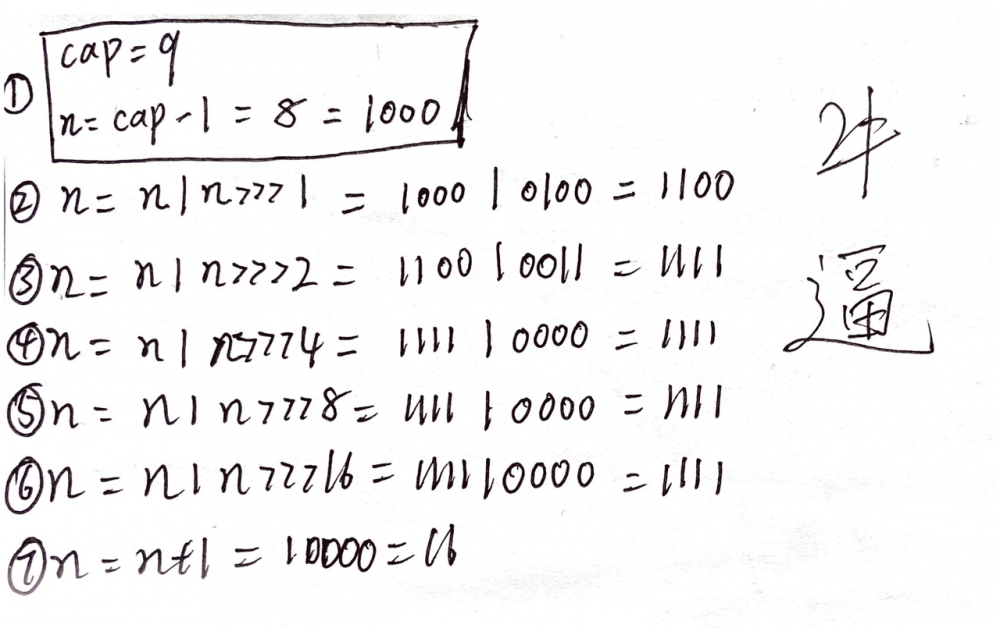 ① cap = 9
n = cap - 1 = 8 = 1000
② n = n | n >>> 1 = 1000 | 0100 = 1100
③ n = n | n >>> 2 = 1100 | 0011 = 1111
④ n = n | n >>> 4 = 1111 | 0000 = 1111
⑤ n = n | n >>> 8 = 1111 | 0000 = 1111
⑥ n = n | n >>> 16 = 1111 | 0000 = 1111
⑦ n = n + 1 = 10000 = 16
牛
逼